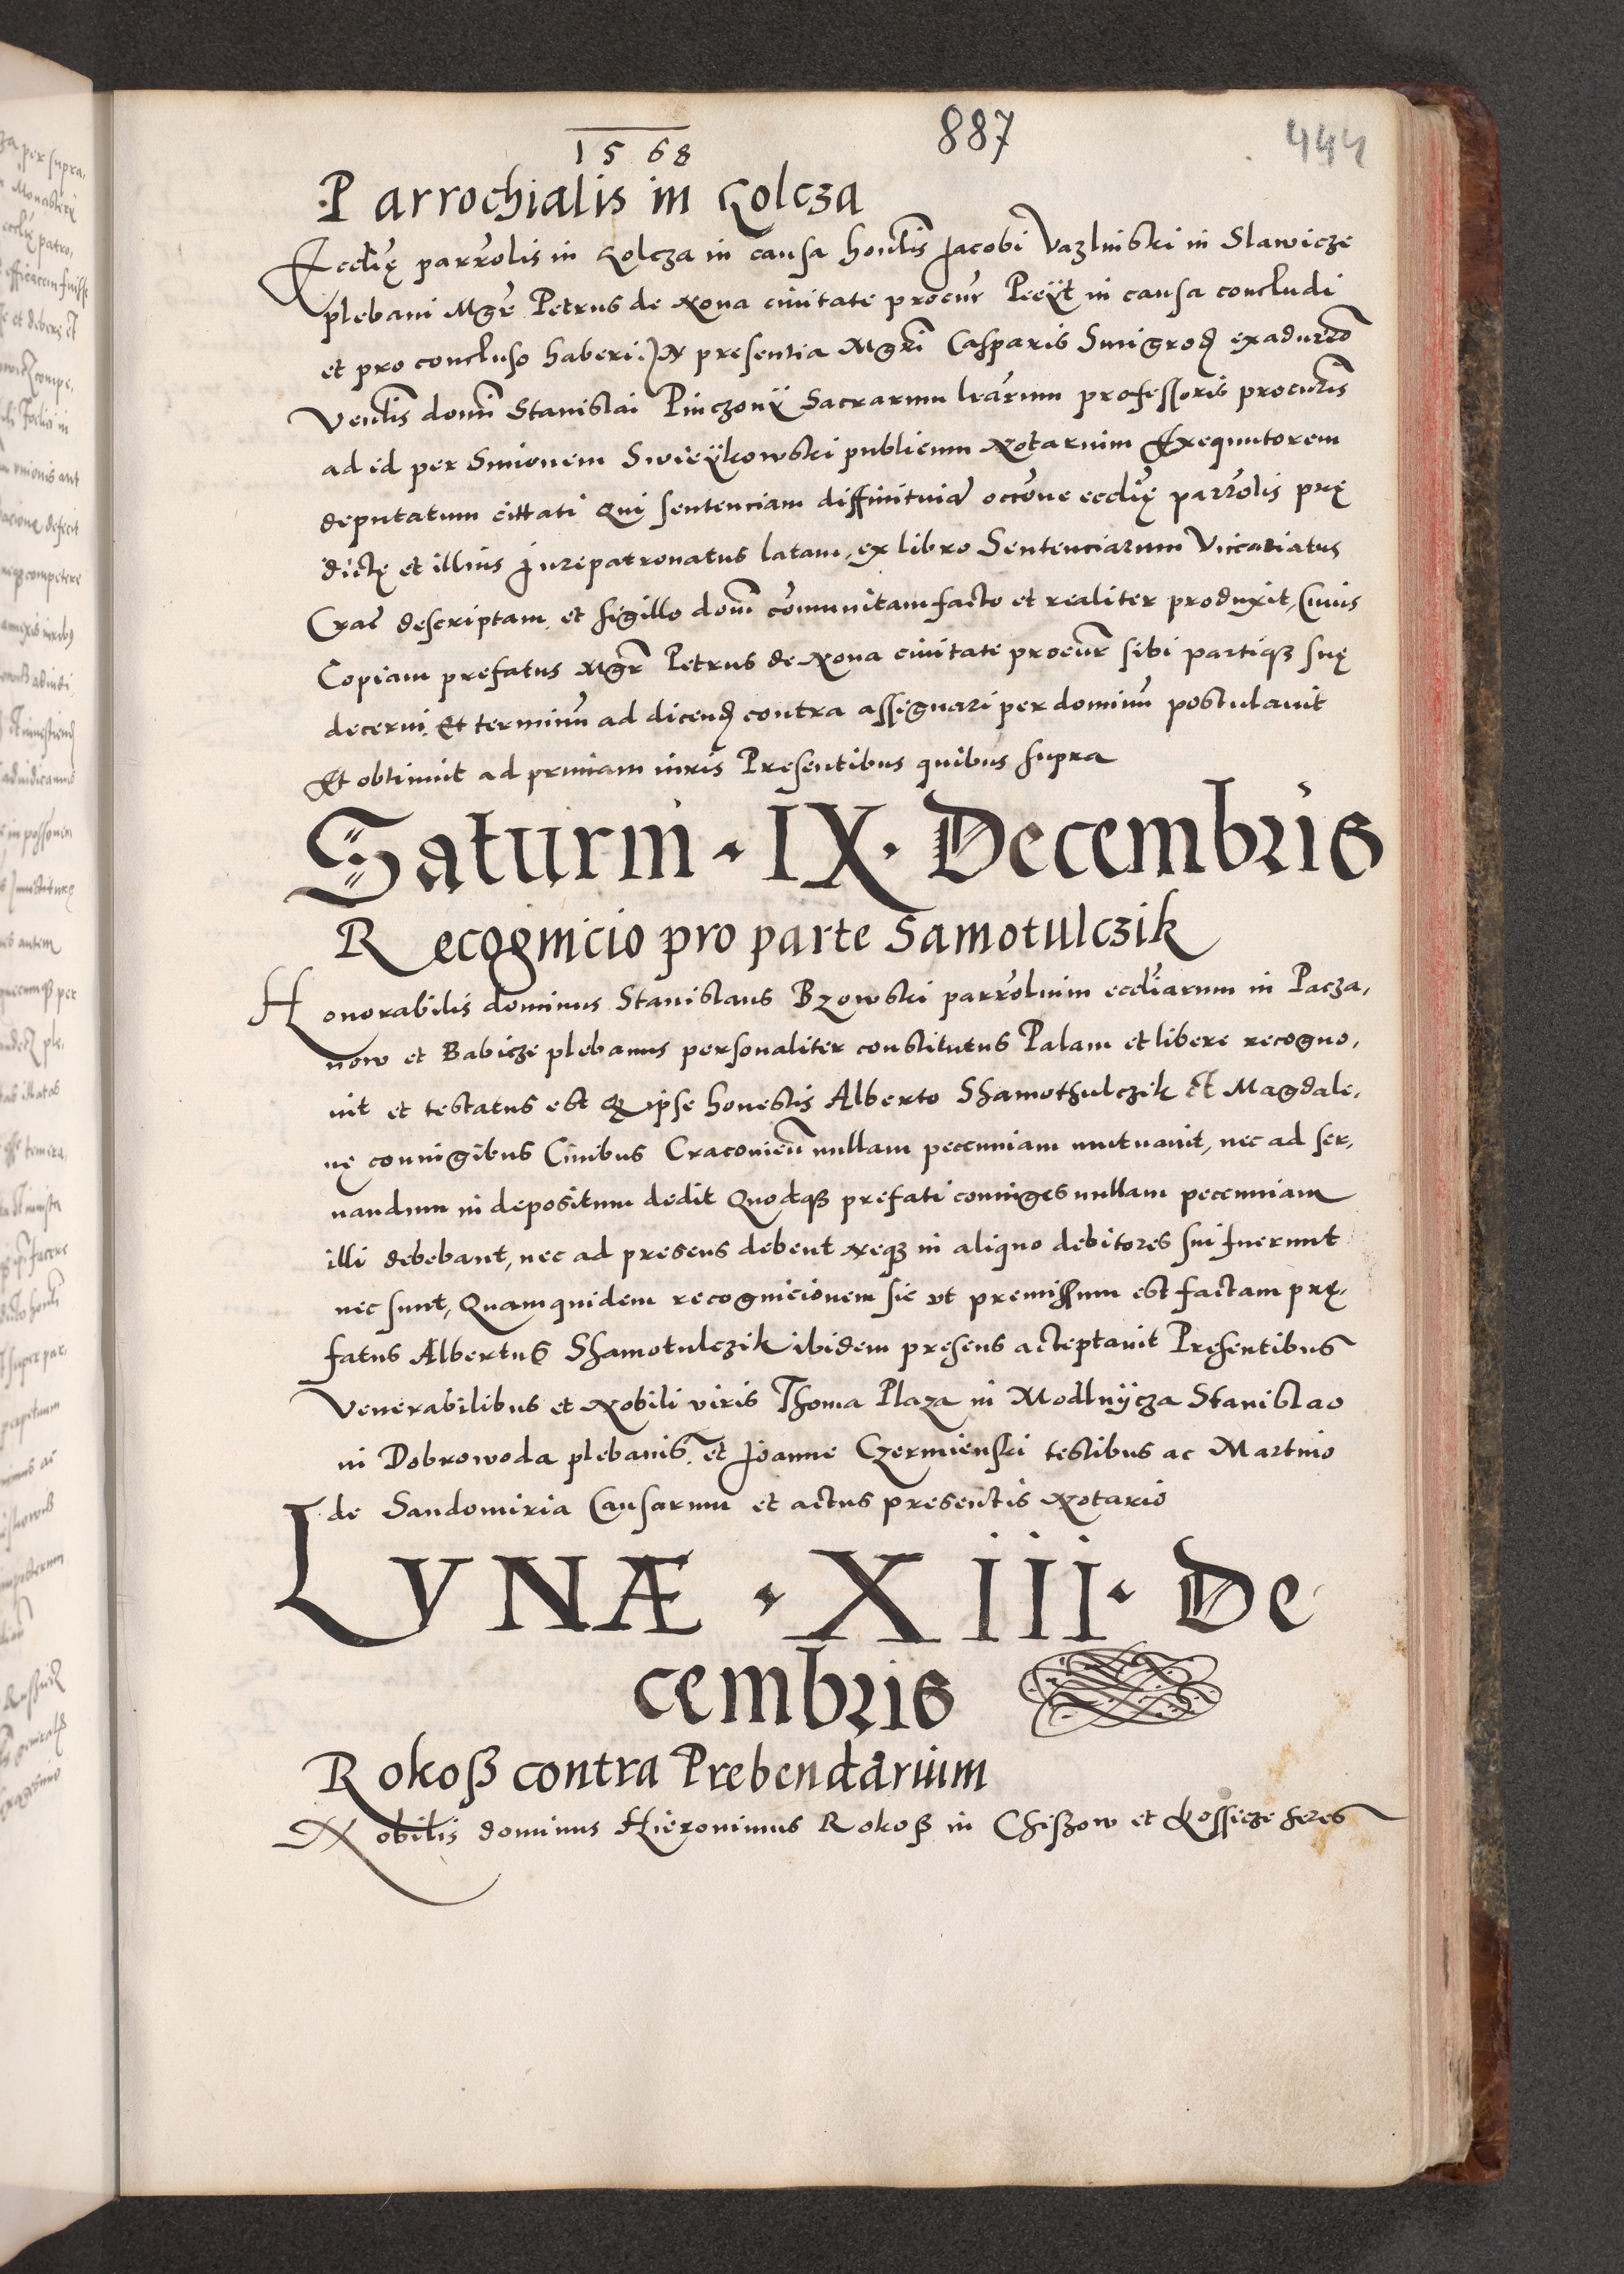 1568
887
444
Parrochialis in Golcza
Ecclię parrolis in Golcza in causa honlis Jacobi Vazlinski in Slawicze
plebani Mgr Petrus de Nova civitate procur Peeÿt in causa concludi
et pro concluso haberi IN presentia Mgri Casparis Smigrod ex adverso
Venlis domini Stanislai Pinczonÿ Sacrarum lrarum professoris procuris
ad id per Simonem Swieÿkowski publicum Notarium Exequutorem
deputatum cittati Qui sentenciam diffinitiva occone ecclię parrolis prę
dictę et illius Jurepatronatus latam, ex libro Sentenciarum Viccariatus
Crac descriptam et sigillo dom comunitam facto et realiter produxit, Cuius
Copiam prefatus Mgr Petrus de Nova civitate procur sibi partiqꝫ suę
decerni. Et terminu ad dicend contra assignari per dominu postulavit
Et obtinuit ad primam iuris Presentibus quibus supra
Saturni · IX · Decembris
Recognicio pro parte Samotulczik
Honorabilis dominus Stanislaus Bzowski parrolium eccliarum in Pacza,
now et Babicze plebanus personaliter constitutus Palam et libere recogno,
vit et testatus est Q ipse honestis Alberto Shamothulczik et Magdale,
nę coniugibus Civibus Cracovien nullam pecuniam mutuavit, nec ad ser,
vandum in depositum dedit Quodqꝫ prefati coniuges nullam pecenniam
illi debebant, nec ad presens debent neqꝫ in aliquo debitores sui fuerunt
nec sunt, Quamquidem recognicionem sic ut premissum est factam prę,
fatus Albertus Shamotulczik ibidem presens acceptavit Presentibus
Venerabilibus et Nobili viris Thoma Plaza in Modlnijcza Stanislao
in Dobrowoda plebanis, et Joanne Czermienski testibus ac Martino
de Sandomiria Causarum et actus presentis Notario
LVNÆ · XIII · De
cembris
Rokoß contra Prebendarium
Nobilis dominus Hieronimus Rokoß in Chißow et Kossicze heres